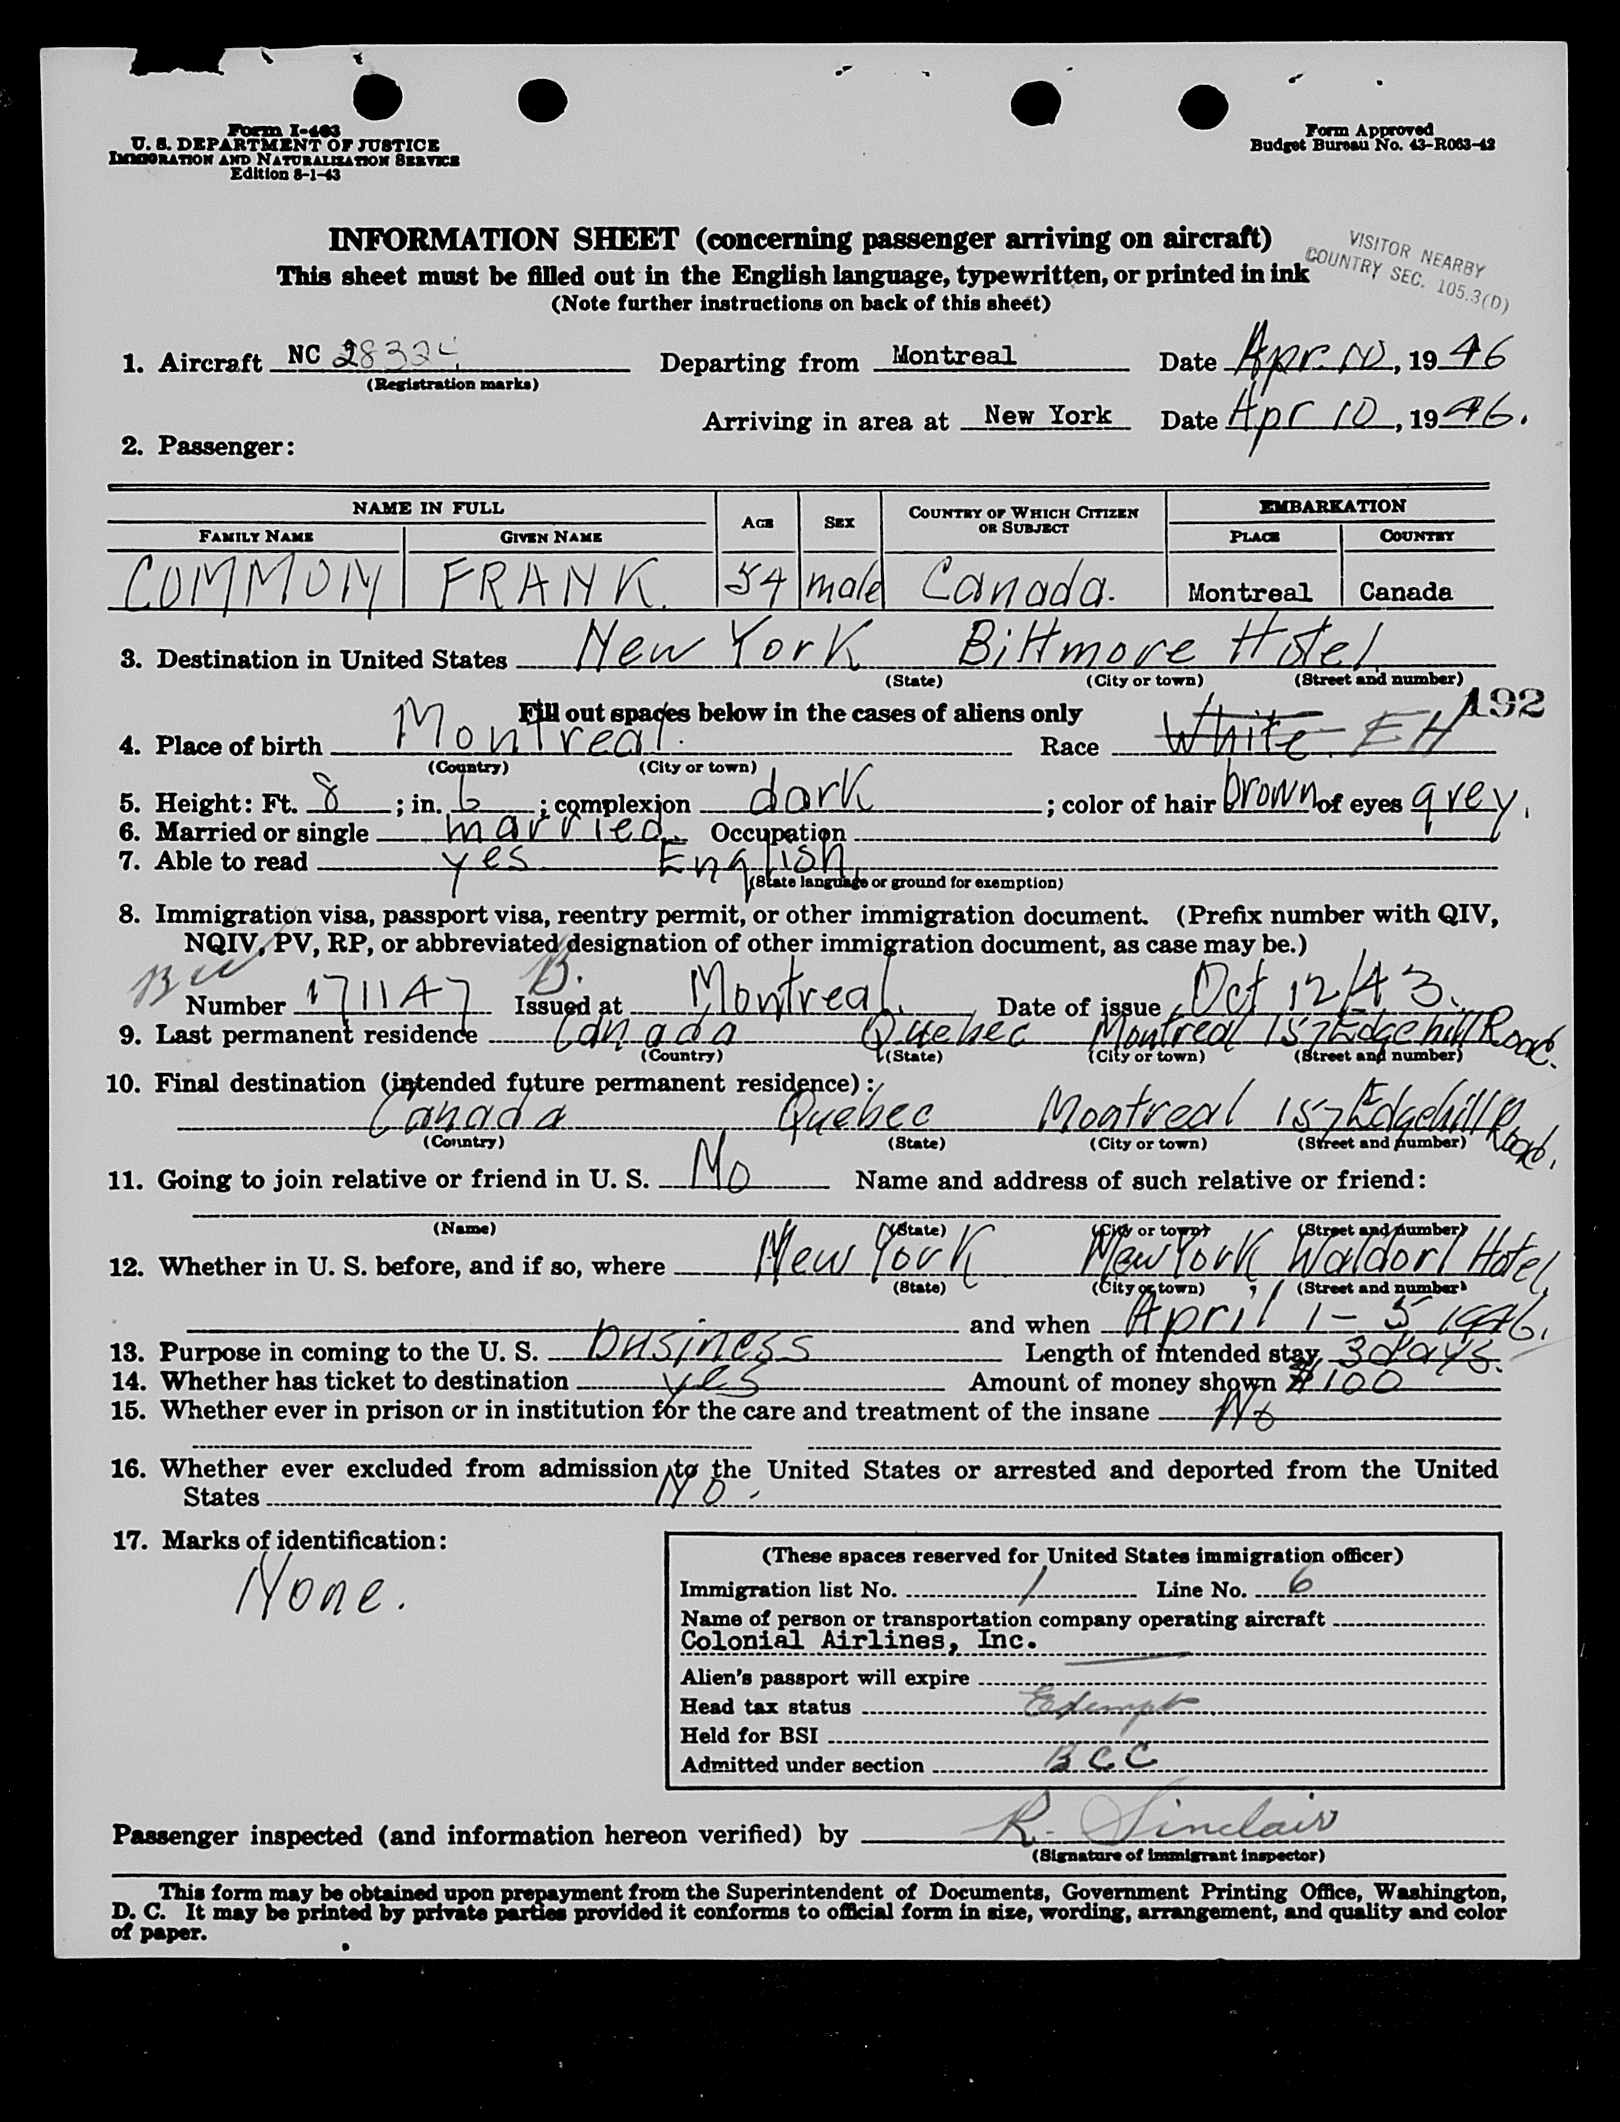 Form I-463
U. S. DEPARTMENT OF JUSTICE
IMMIGRATION AND NATURALIZATION SERVICE
Edition 8-1-43
Form Approved
Budget Bureau No. 43-R063-42
INFORMATION SHEET (concerning passenger arriving on aircraft)
This sheet must be filled out in the English language, typewritten, or printed in ink
(Note further instructions on back of this sheet)
VISITOR NEARBY
COUNTRY SEC. 105.3(D)
1. Aircraft NC 28324 Departing from Montreal Date Apr. 10, 1946
(Registration marks)
Arriving in area at New York Date Apr 10, 1946.
2. Passenger:
NAME IN FULL AGE SEX COUNTRY OF WHICH CITIZEN OR SUBJECT EMBARKATION
FAMILY NAME GIVEN NAME PLACE COUNTRY
COMMON FRANK. 54 male Canada. Montreal Canada
3. Destination in United States New York Biltmore Hotel
(State) (City or town) (Street and number)
192
Fill out spaces below in the cases of aliens only
4. Place of birth Montreal. Race White EH
(Country) (City or town)
5. Height: Ft. 8; in. 6; complexion dark; color of hair brown of eyes grey.
6. Married or single married. Occupation
7. Able to read yes English
(State language or ground for exemption)
8. Immigration visa, passport visa, reentry permit, or other immigration document. (Prefix number with QIV,
NQIV, PV, RP, or abbreviated designation of other immigration document, as case may be.)
B.
Number 171147 Issued at Montreal. Date of issue Oct 12/43.
9. Last permanent residence Canada Quebec Montreal 157 Edgehill Road.
(Country) (State) (City or town) (Street and number)
10. Final destination (intended future permanent residence):
Canada Quebec Montreal 157 Edgehill Road.
(Country) (State) (City or town) (Street and number)
11. Going to join relative or friend in U. S. No Name and address of such relative or friend:
(Name) (State) (City or town) (Street and number)
12. Whether in U. S. before, and if so, where New York New York Waldorf Hotel,
(State) (City or town) (Street and number)
and when April 1-5 1946.
13. Purpose in coming to the U. S. business Length of intended stay 3 days.
14. Whether has ticket to destination yes Amount of money shown $100
15. Whether ever in prison or in institution for the care and treatment of the insane No
16. Whether ever excluded from admission to the United States or arrested and deported from the United
States No.
17. Marks of identification:
None.
(These spaces reserved for United States immigration officer)
Immigration list No. 1 Line No. 6
Name of person or transportation company operating aircraft
Colonial Airlines, Inc.
Alien's passport will expire
Head tax status Exempt
Held for BSI
Admitted under section BCC
Passenger inspected (and information hereon verified) by R. Sinclair
(Signature of immigrant inspector)
This form may be obtained upon prepayment from the Superintendent of Documents, Government Printing Office, Washington,
D. C. It may be printed by private parties provided it conforms to official form in size, wording, arrangement, and quality and color
of paper.